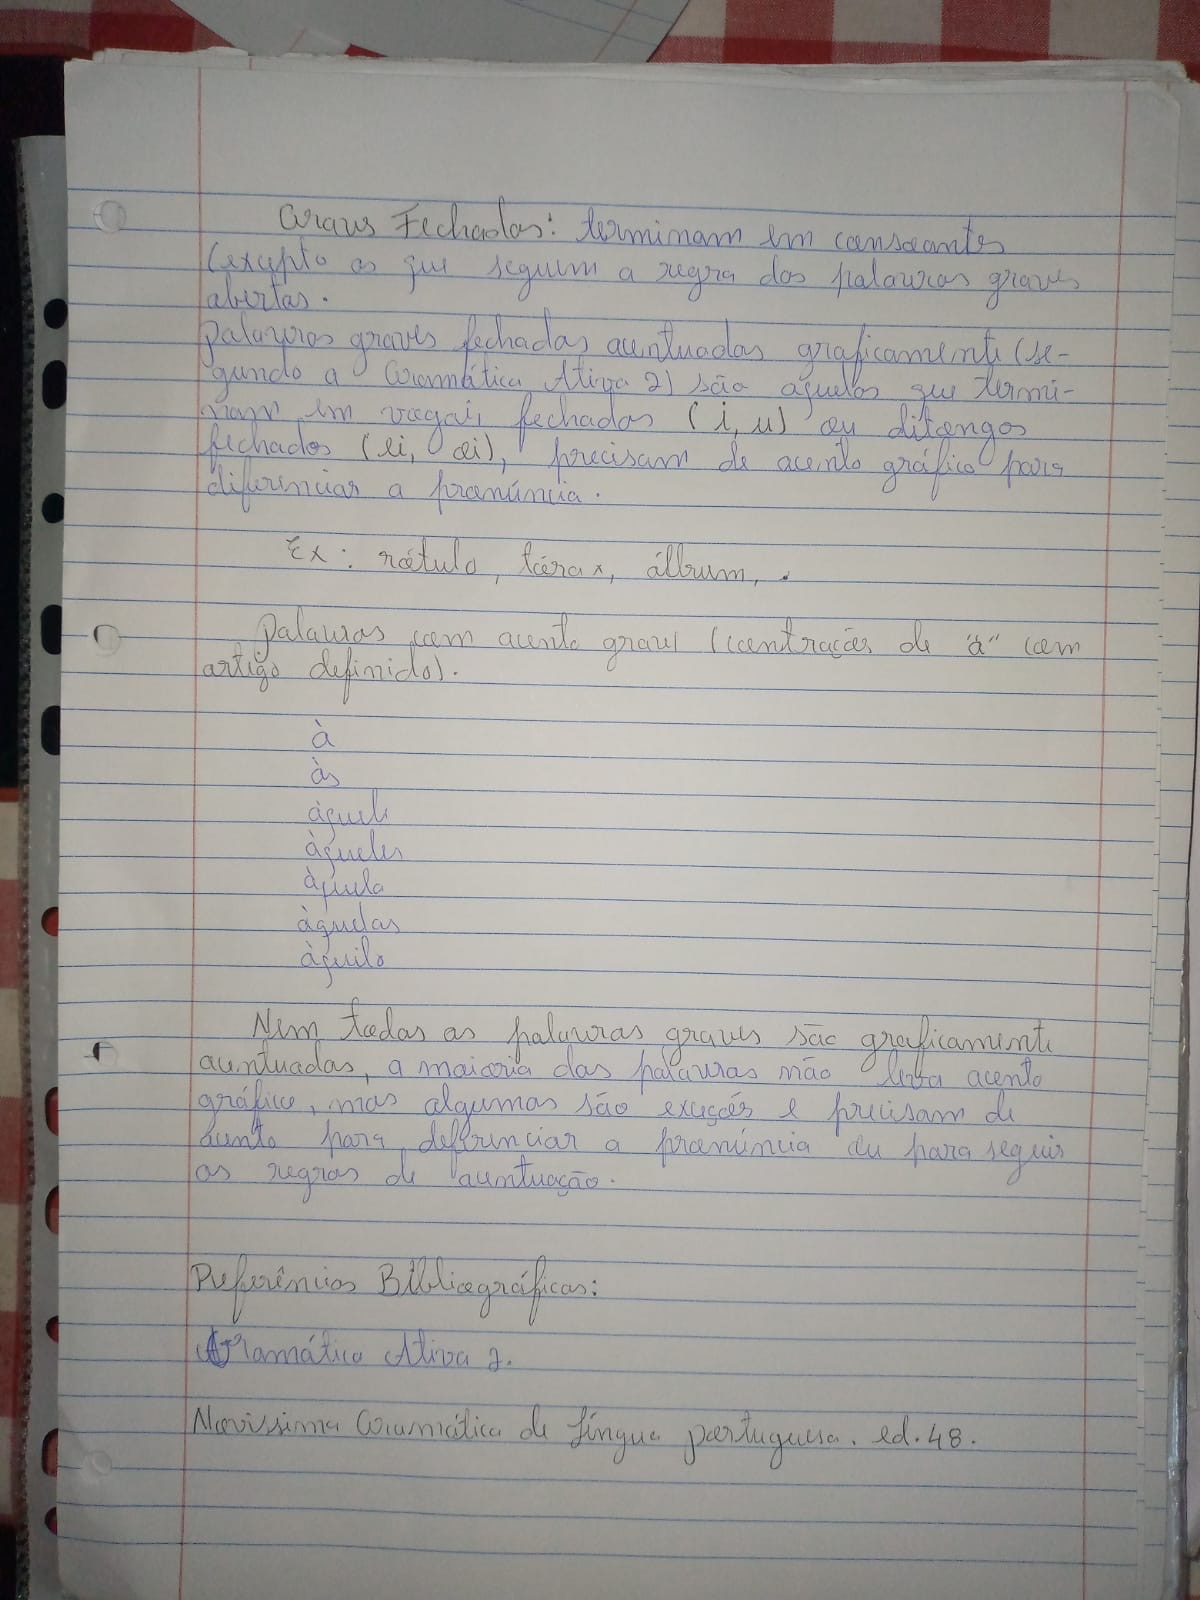 Graves Fechadas: terminam em consoantes
(excepto as que seguem a regra das palavras graves
abertas.
Palavras graves fechadas acentuadas graficamente (se-
gundo a Gramática Ativa 2) são aquelas que termi-
nam em vogais fechadas (i, u) ou ditongos
fechados (ei, oi), precisam de acento gráfico para
diferenciar a pronúncia.
Ex: rótulo, tórax, álbum, .
Palavras com acento grave (contrações de "a" com
artigo definido).
à
às
àquele
àqueles
àquela
àquelas
àquilo
Nem todas as palavras graves são graficamente
acentuadas, a maioria das palavras não leva acento
gráfico, mas algumas são exceções e precisam de
acento para deferenciar a pronúncia ou para seguir
as regras de acentuação.
Referências Bibliográficas:
Gramática Ativa 2.
Novissima Gramática de língua portuguesa. ed. 48.